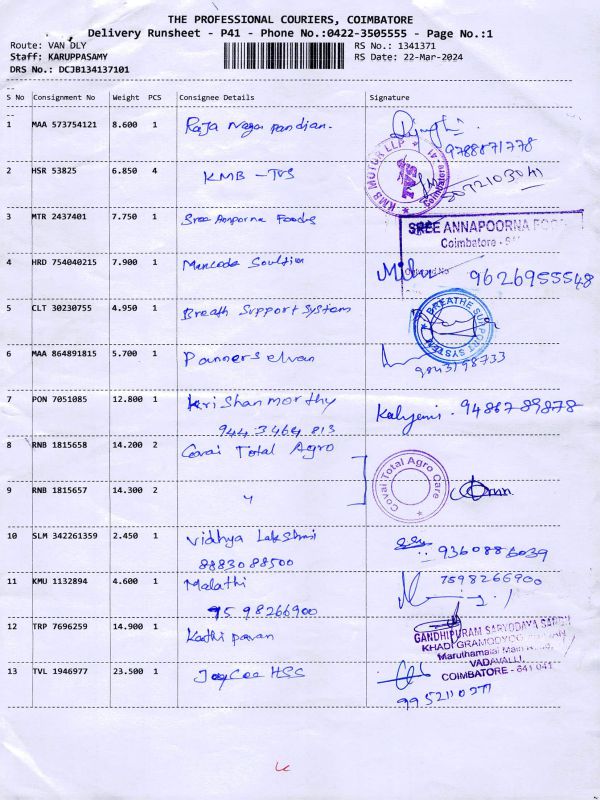 THE PROFESSIONAL COURIERS, COIMBATORE
Delivery Runsheet - P41 - Phone No.:0422-3505555 - Page No.:1
Route: VAN DLY
Staff: KARUPPASAMY
DRS No.: DCJB134137101
RS No.: 1341371
RS Date: 22-Mar-2024
S No Consignment No Weight PCS Consignee Details Signature
1 MAA 573754121 8.600 1 Raja Naga pandian.
9788871778
2 HSR 53825 6.850 4 KMB - TVS
KMB MOTOR LLP * Coimbatore - 41 *
3 MTR 2437401 7.750 1 Sree Annporna Foods
SREE ANNAPOORNA
Coimbatore -
4 HRD 754040215 7.900 1
9626955548
5 CLT 30230755 4.950 1 Breath Support System
BREATHE SUPPORT SYSTEM
6 MAA 864891815 5.700 1 Panners elvan
7 PON 7051085 12.800 1 krishanmorthy
944 3464 813
Kalyani . 9486789878
8 RNB 1815658 14.200 2 Covai Total Agro
Covai Total Agro Care
9 RNB 1815657 14.300 2 "
10 SLM 342261359 2.450 1 Vidhya Lakshmi
88830 88500
9360886039
11 KMU 1132894 4.600 1 Malathi
75 98266900
7598266900
12 TRP 7696259 14.900 1 Kathi pavan
GANDHIPURAM SARVODAYA SANGH
KHADI GRAMODYOG
Maruthamalai Main Road,
VADAVALLI,
COIMBATORE - 641 041
13 TVL 1946977 23.500 1 Jaycee HSS